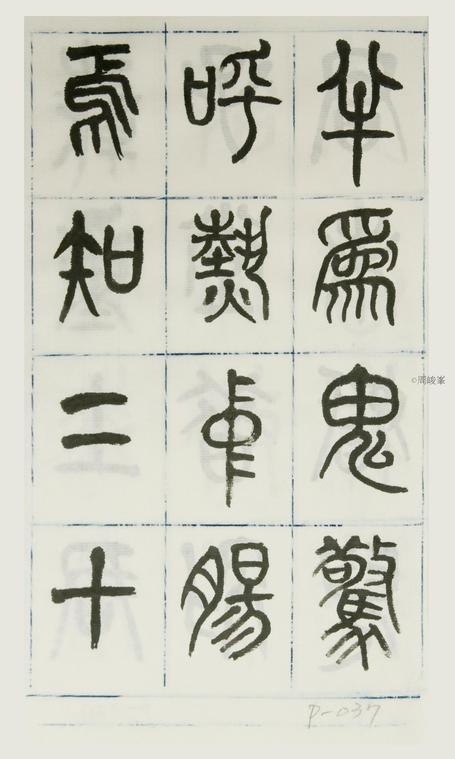 半為鬼驚
呼熱中腸
焉知二十
©周峻峯
P-037